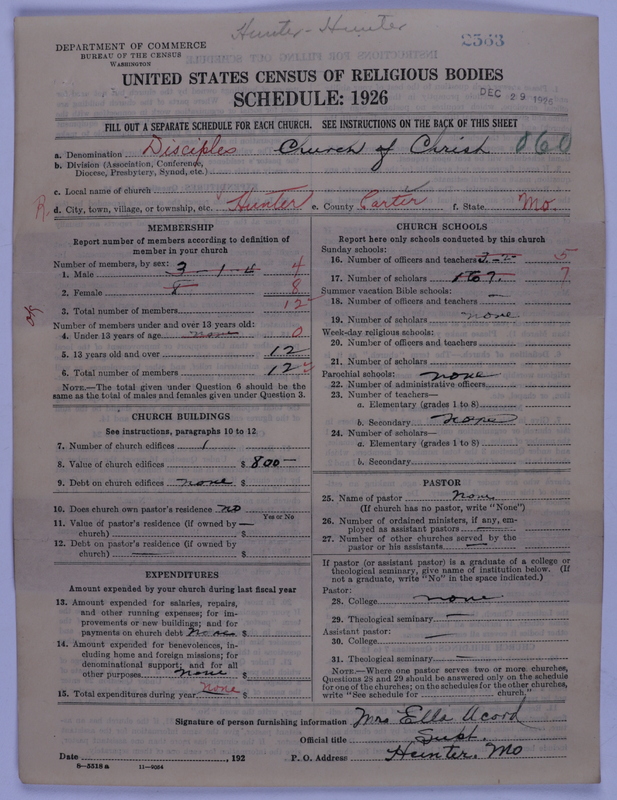 Hunter - Hunter
2563
DEPARTMENT OF COMMERCE
BUREAU OF THE CENSUS
WASHINGTON
UNITED STATES CENSUS OF RELIGIOUS BODIES
SCHEDULE: 1926
DEC 29 1926
FILL OUT A SEPARATE SCHEDULE FOR EACH CHURCH. SEE INSTRUCTIONS ON THE BACK OF THIS SHEET
a. Denomination Disciples Church of Christ 060
b. Division (Association, Conference, Diocese, Presbytery, Synod, etc.)
c. Local name of church
R. d. City, town, village, or township, etc. Hunter e. County Carter f. State Mo.
MEMBERSHIP
Report number of members according to definition of
member in your church
Number of members, by sex:
1. Male 3-1-4 4
2. Female 8 8
3. Total number of members 12
Number of members under and over 13 years old:
4. Under 13 years of age none 0
5. 13 years old and over 12
6. Total number of members 12
NOTE.—The total given under Question 6 should be the
same as the total of males and females given under Question 3.
CHURCH BUILDINGS
See instructions, paragraphs 10 to 12
7. Number of church edifices 1
8. Value of church edifices $ 800—
9. Debt on church edifices none $
10. Does church own pastor's residence no
Yes or No
11. Value of pastor's residence (if owned by
church) $
12. Debt on pastor's residence (if owned by
church) $
EXPENDITURES
Amount expended by your church during last fiscal year
13. Amount expended for salaries, repairs,
and other running expenses; for im-
provements or new buildings; and for
payments on church debt None $
14. Amount expended for benevolences, in-
cluding home and foreign missions; for
denominational support; and for all
other purposes none $
15. Total expenditures during year none $
CHURCH SCHOOLS
Report here only schools conducted by this church
Sunday schools:
16. Number of officers and teachers 5
17. Number of scholars 7
Summer vacation Bible schools:
18. Number of officers and teachers —
19. Number of scholars none
Week-day religious schools:
20. Number of officers and teachers
21. Number of scholars
Parochial schools: none
22. Number of administrative officers
23. Number of teachers—
a. Elementary (grades 1 to 8)
b. Secondary none
24. Number of scholars—
a. Elementary (grades 1 to 8)
b. Secondary
PASTOR
25. Name of pastor None
(If church has no pastor, write "None")
26. Number of ordained ministers, if any, em-
ployed as assistant pastors —
27. Number of other churches served by the
pastor or his assistants —
If pastor (or assistant pastor) is a graduate of a college or
theological seminary, give name of institution below. (If
not a graduate, write "No" in the space indicated.)
Pastor:
28. College none
29. Theological seminary —
Assistant pastor:
30. College —
31. Theological seminary —
NOTE.—Where one pastor serves two or more churches,
Questions 28 and 29 should be answered only on the schedule
for one of the churches; on the schedules for the other churches,
write "See schedule for church."
Signature of person furnishing information Mrs Ella Acord
Official title Supt.
Date , 192 P. O. Address Hunter, Mo
8-5518a 11-9054